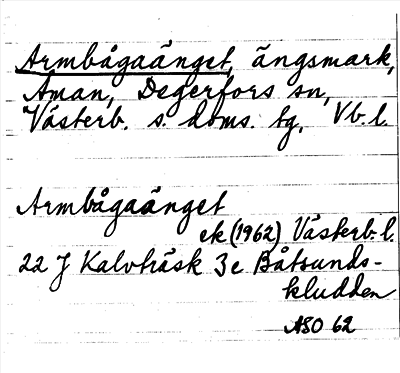 Armbågaänget, ängsmark,
Åman, Degerfors sn,
Västerb. s. doms. tg, Vb. l.
Armbågaänget
ek (1962) Västerb. l.
22 J Kalvträsk 3c Båtsunds-
kludden
ASO 62